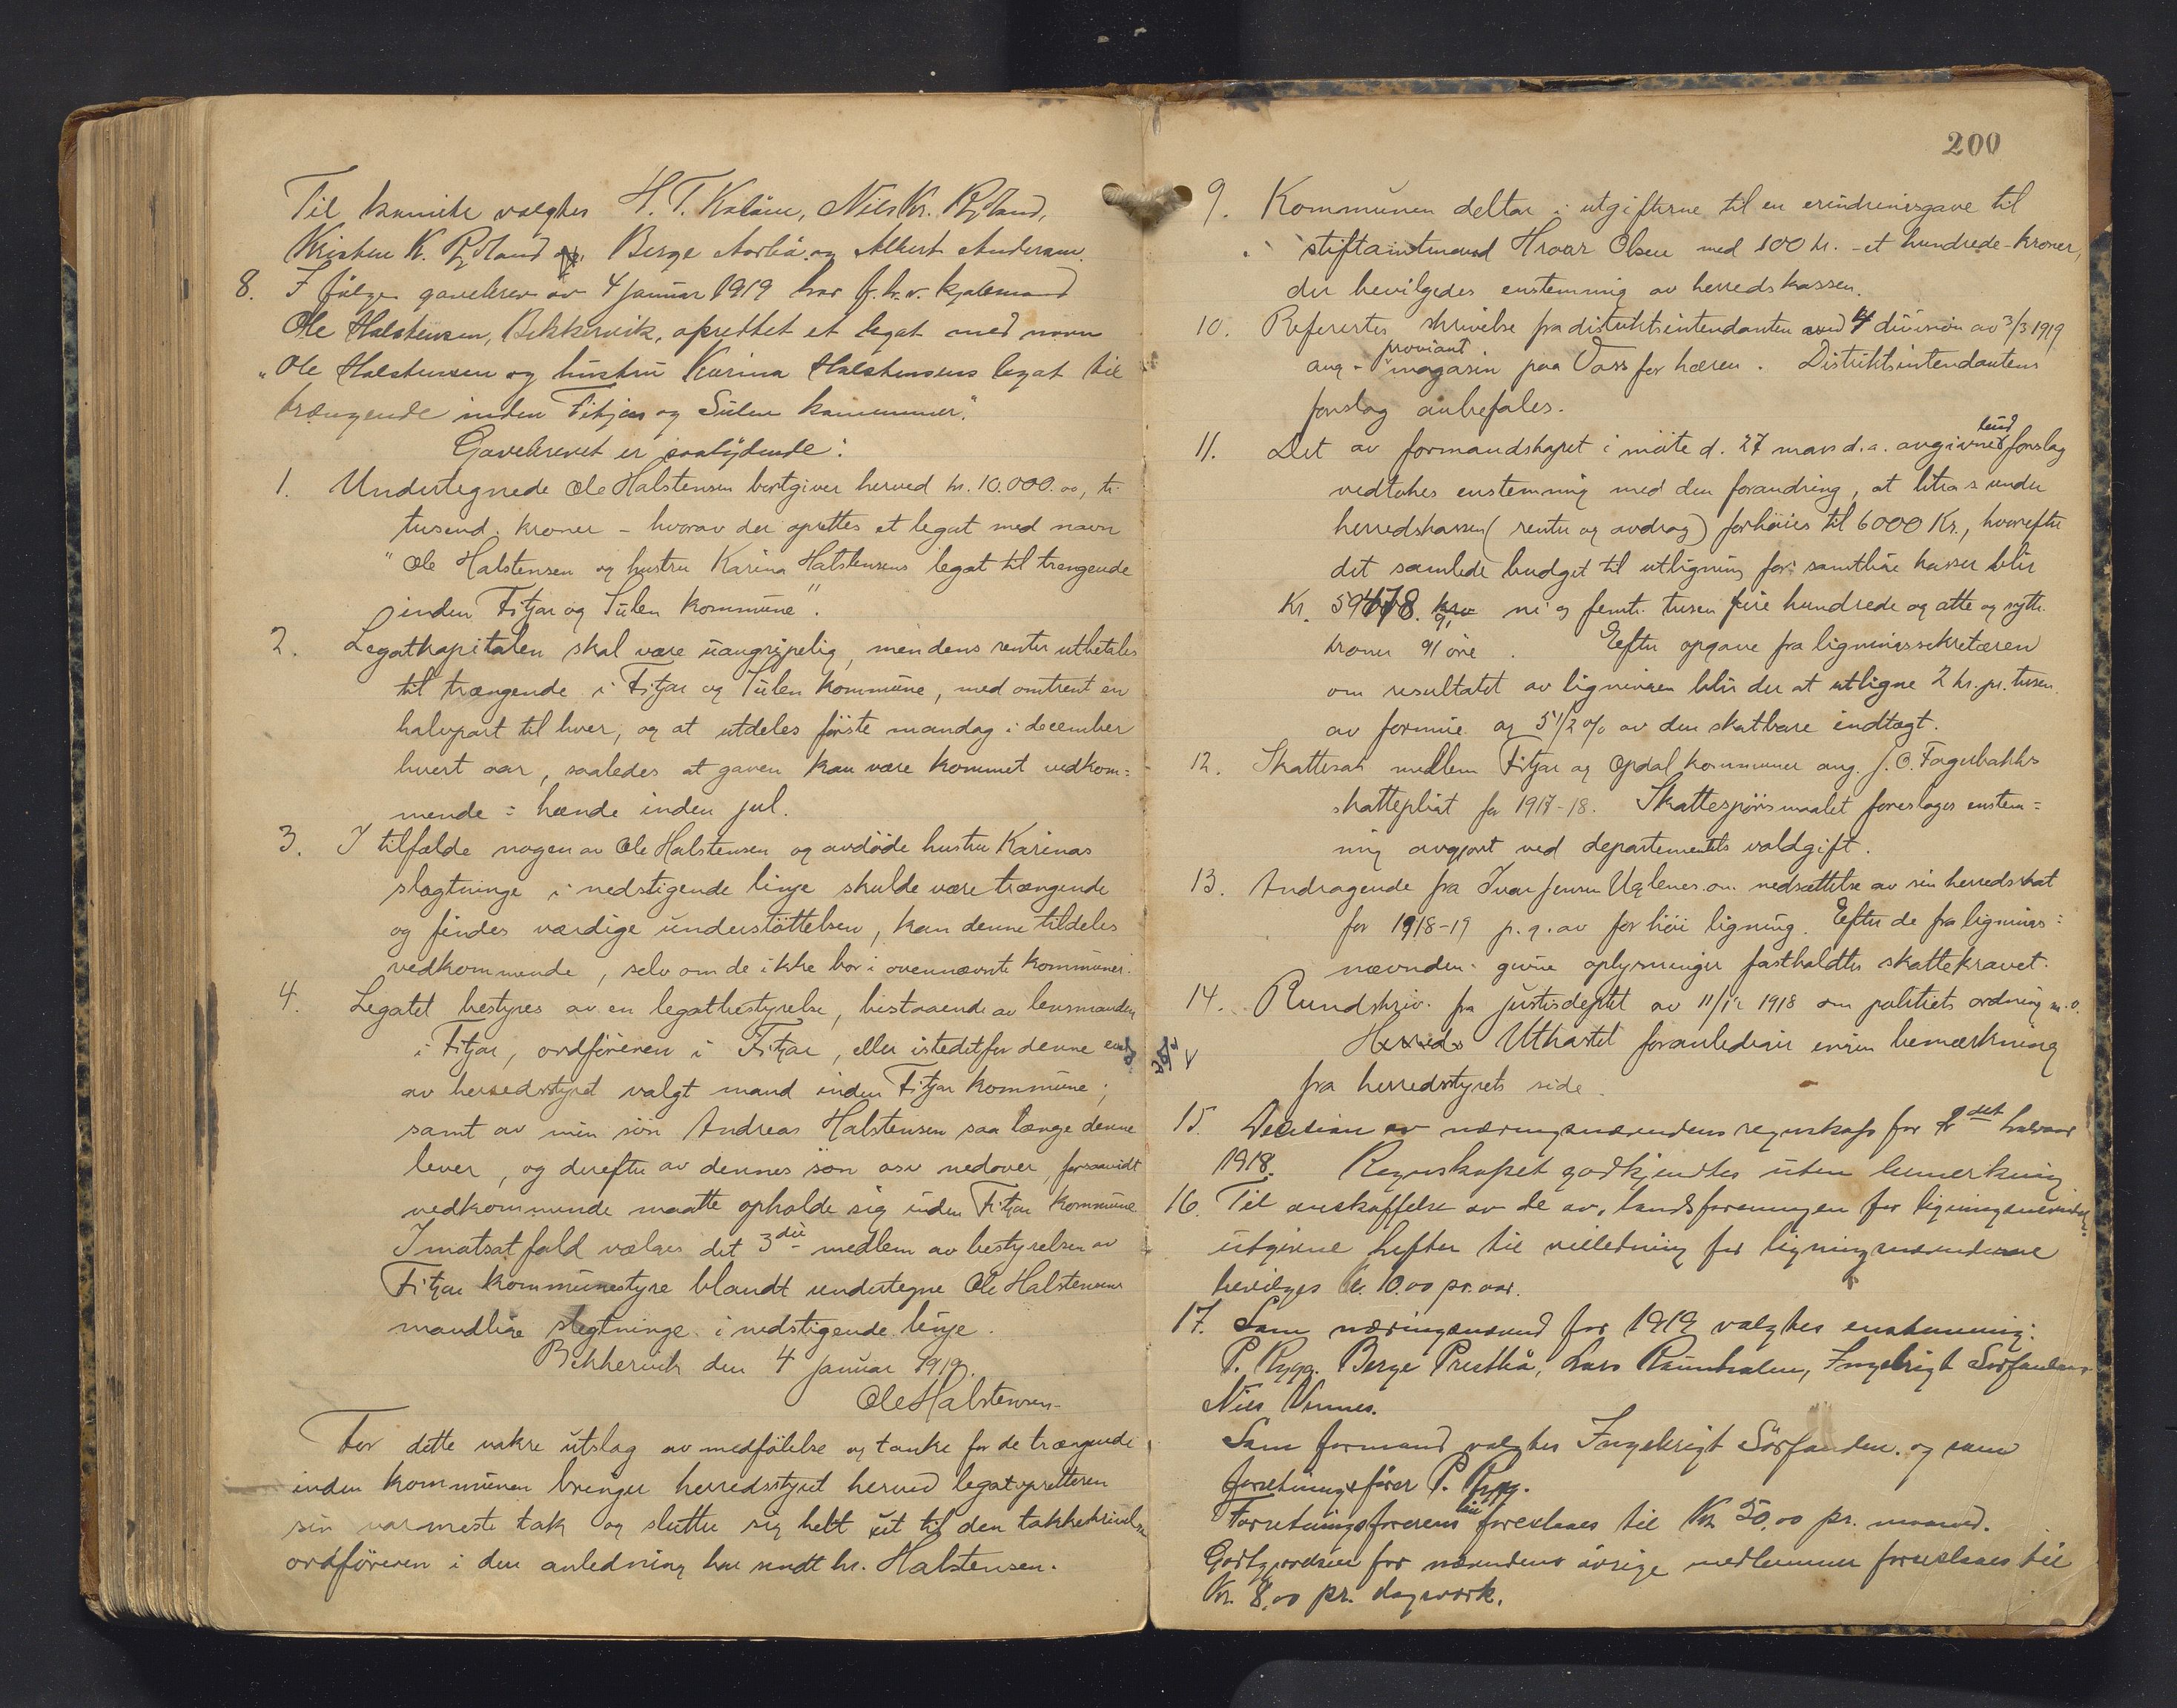 Til komite valgtes H. T. Kaldun, Nils Kr. Rydland,
Kristen K. Rydland Berge Aarbö og Albert Anderssen.
8. I følge gavebrev av 4 januar 1919 har f.h.v. kjøbmand
Ole Halstensen, Bekkervik, oprettet et legat med navn
"Ole Halstensen og hustru Karina Halstensens legat til
trængende inden Fitjar og Sulen kommuner".
Gavebrevet er saalydende:
1. Undertegnede Ole Halstensen bortgiver herved kr. 10.000.00, ti-
tusend kroner – hvorav der oprettes et legat med navn
"Ole Halstensen og hustru Karina Halstensens legat til trengende
inden Fitjar og Sulen kommune".
2. Legatkapitalen skal være uangripelig, men dens renter utbetales
til trængende i Fitjar og Sulen kommune, med omtrent en
halvpart til hver, og at utdeles første mandag i december
hvert aar, saaledes at gaven kan være kommet vedkom=
mende i hænde inden jul.
3. I tilfælde nogen av Ole Halstensen og avdøde hustru Karinas
slægtninge i nedstigende linje skulde være trængende
og findes værdige understøttelsen, kan denne tildeles
vedkommende, selv om de ikke bor i ovennævnte kommuner.
4. Legatet bestyres av en legatbestyrelse, bestaaende av lensmanden
i Fitjar, ordføreren i Fitjar, eller istedetfor denne en
av herredsstyret valgt mand inden Fitjar kommune;
samt av min søn Andreas Halstensen saa længe denne
lever, og derefter av dennes søn osv nedover, forsaavidt
vedkommende maatte opholde sig inden Fitjar kommune
I motsat fald vælges det 3die medlem av bestyrelsen av
Fitjar kommunestyre blandt undertegne Ole Halstensens
mandlige slegtninge i nedstigende linje.
Bekkervik den 4 januar 1919.
Ole Halstensen.
For dette vakre utslag av medfølelse og tanke for de trængende
inden kommunen bringer herredsstyret herved legatopretteren
sin varmeste tak og slutter sig helt ut til den takkeskrivelse
ordføreren i den anledning har sendt hr. Halstensen.
200
9. Kommunen deltar i utgifterne til en erindringsgave til
stiftamtmand Hroar Olsen med 100 kr. – et hundrede – kroner,
der bevilgedes enstemmig av herredskassen.
10. Referertes skrivelse fra distriktsintendanten ved 4 division av 3/3 1919
ang. proviant magasin paa Voss for hæren. Distriktsintendantens
forslag anbefales.
11. Det av formandskapet i møte d. 27 mars d.a. avgivne forslag
vedtokes enstemmig med den forandring, at litra s under
herredskassen (renter og avdrag) forhøies til 6000 Kr., hvorefter
det samlede budget til utligning for samtlige kasser blir
Kr. 59478. ni og femti tusen fire hundrede og atte og sytti
kroner 91 øre. Efter opgave fra ligningssekretæren
om resultatet av ligningen blir der at utligne 2 kr. pr. tusen
av formue og 5 1/2 % av den skatbare indtægt.
12. Skattesak mellem Fitjar og Opdal kommuner ang. J. O. Fagerbakks
skattepligt for 1917-18. Skattespørsmaalet foreslages enstem=
mig avgjort ved departementets voldgift.
13. Andragende fra Ivar Jensen Uglenes om nedsættelse av sin herredsskat
for 1918-19 p. g. av for høi ligning. Efter de fra lignings=
nævnden givne oplysninger fastholdtes skattekravet.
14. Rundskriv. fra justisdeptet av 11/12 1918 om politiets ordning m.v.
Utkastet foranlediger ingen bemærkning
fra herredsstyrets side.
15. Decision av næringsnævndens regnskap for 2det halvaar
1918. Regnskapet godkjendtes uten bemerkning
16. Til anskaffelse av de av landsforeningen for ligningsnævnder
utgivne hefter til veiledning for ligningsnævnderne
bevilges kr. 10.00 pr. aar.
17. Som næringsnævnd for 1919 valgtes enstemmig:
P. Rygg. Berge Prestbö, Lars Raunholm, Ingebrigt Sørfonden
Nils Vinnes.
Som formand valgtes Ingebrigt Sørfonden og som
forretningsfører P. Rygg.
Forretningsførerens løn foreslaaes til Kr 50.00 pr. maaned.
Godtgjørelsen for nævndens øvrige medlemmer foreslaaes til
Kr. 8.00 pr. dagverk.